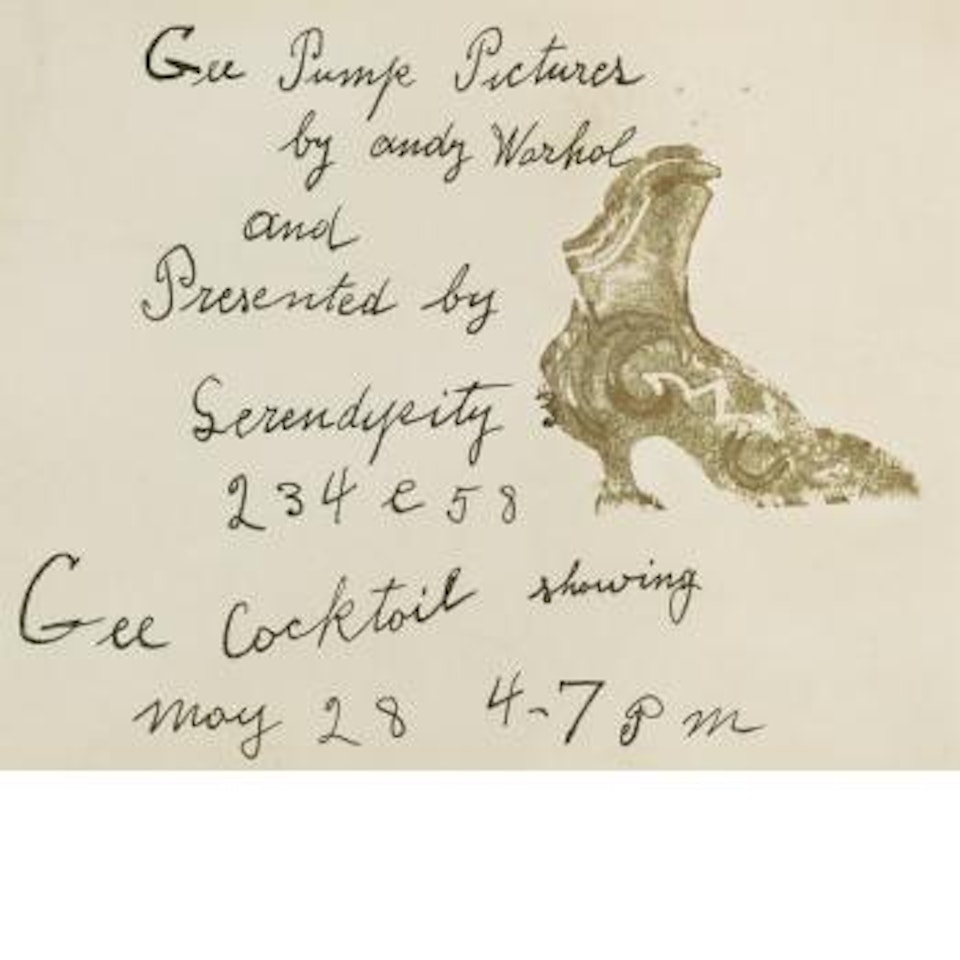 Gee Pump Pictures
by andy Warhol
and
Presented by
Serendipity 3
234 e 58
Gee Cocktail showing
may 28 4-7 pm